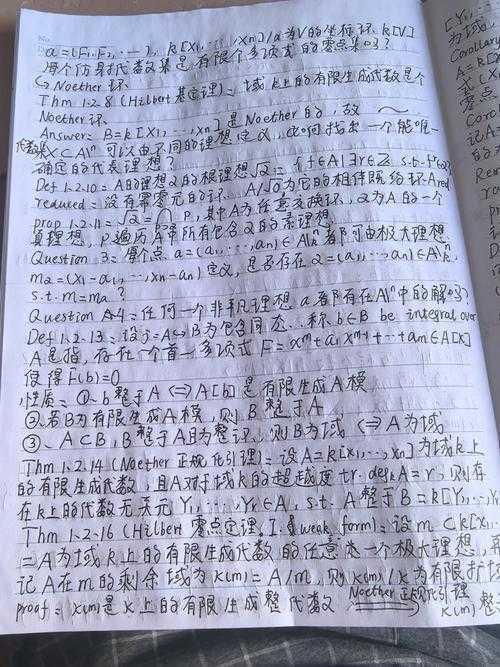 a=(F₁,F₂,…), k[X₁,…,Xn]/a为V的坐标环 k[V]
每个仿射代数集是有限个多项式的零点集吗?
↳Noether环
Thm 1.2.8 (Hilbert基定理)= 域k上的有限生成代数是个
Noether环.
Answer= B=k[X₁,…,Xn]是Noether的,故
代数集X⊂A|ⁿ可以由不同的理想定义,如何指出一个能唯一
确定的代表理想?
Def 1.2.10= A的理想a的根理想√a={f∈A|∃r∈Z s.t. fʳ∈a}
reduced= 没有零元的环. A/√0为它的相伴既约环Ared
prop 1.2.11= √a=∩P,其中A为任意交换环,a为A的一个
真理想,P遍历A中所有包含a的素理想
Question 3= 每个点 a=(a₁,…,an)∈A|ⁿ都可由极大理想
ma=(X₁-a₁,…,Xn-an)定义,是否存在a=(a₁,…,an)∈A|ⁿ
s.t. m=ma?
Question 4=任何一个非平凡理想 a 都有在A|ⁿ中的解吗?
Def 1.2.13= 设j=A↪B为包含同态.称b∈B be integral over
A是指,存在一个首一多项式 F=xᵐ+a₁xᵐ⁻¹+…+am∈A[X]
使得F(b)=0
性质= ①b整于A⟺A[b]是有限生成A模
②若B为有限生成A模,则B整于A
③、A⊂B,B整于A且为整环.则B为域⟺A为域
Thm 1.2.14 (Noether正规化引理)= 设A=k[X₁,…,Xn]为域k上
的有限生成代数,且A对于域k的超越度tr.degkA=r,则存
在k上的代数无关元Y₁,…,Yr∈A, s.t. A整于B=k[Y₁,…,
Thm 1.2.16 (Hilbert 零点定理、I. weak form)= 设m⊂k[X₁,…
=A为域k上的有限生成代数的任意一个极大理想,
记A在m的剩余域为κ(m)=A/m,则κ(m)/k为有限扩
proof= κ(m)是k上的有限生成整代数 Noether正规化引理 κ(m)整
[Y₁,…
为域
Corollary
A=k[X
零点
Coro
记A
的为
Rem